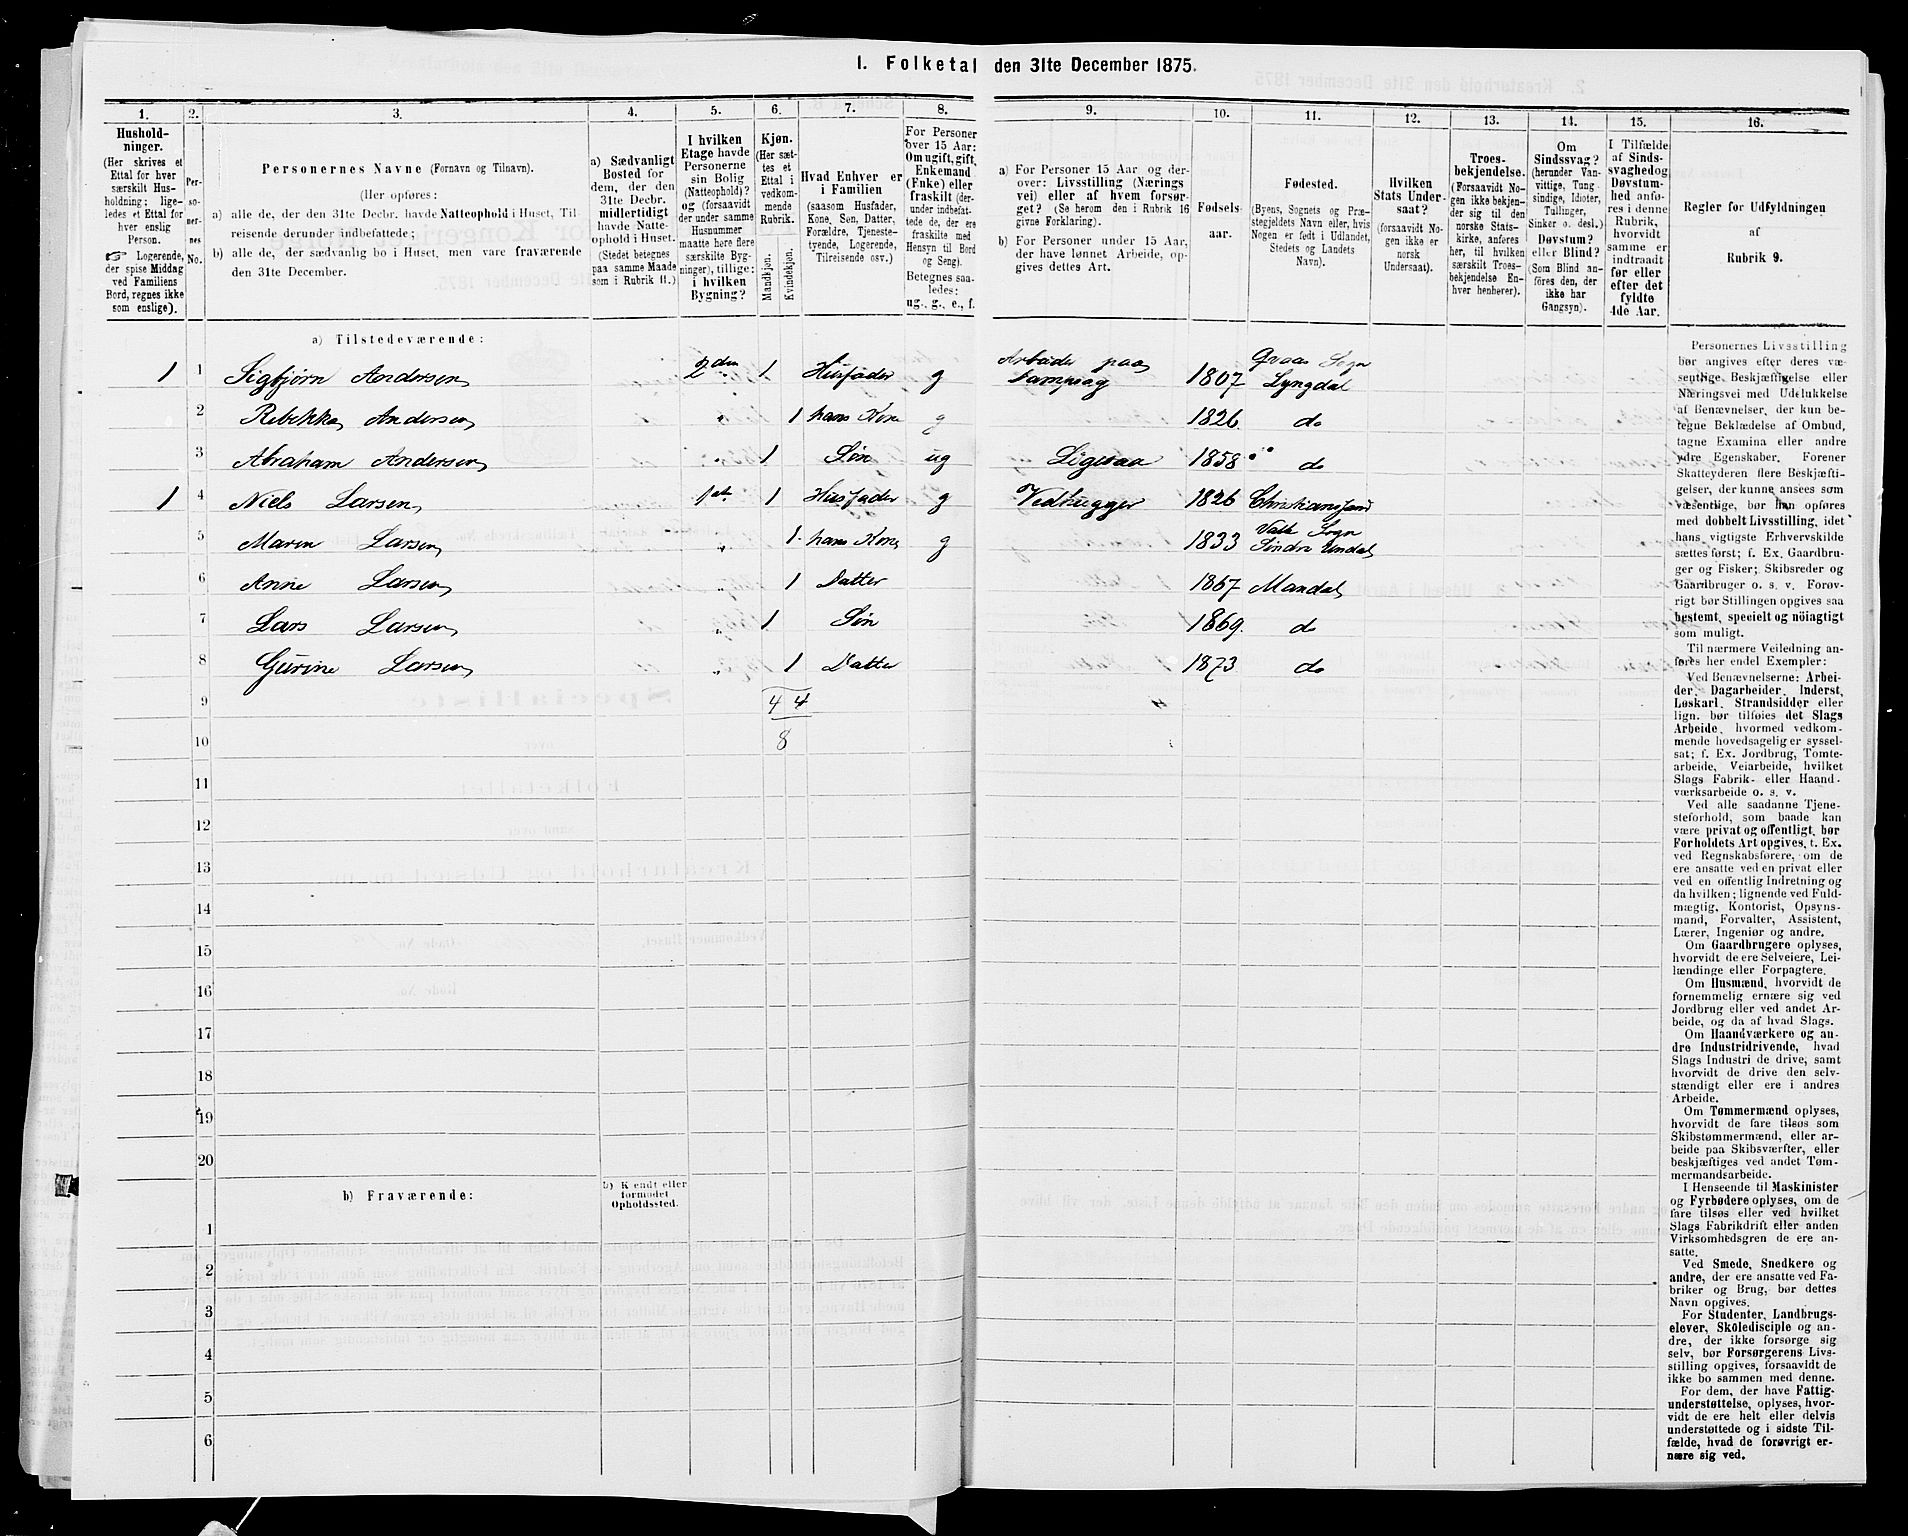 I. Folketal den 31te December 1875.
1.
Hushold-
ninger.
(Her skrives et
Ettal for hver
særskilt Hus-
holdning; lige-
ledes et Ettal for
hver enslig
Person.
Logerende,
der spise Middag
ved Familiens
Bord, regnes ikke
som enslige).
2.
Per-
so-
ner-
nes
No.
3.
Personernes Navne (Fornavn og Tilnavn).
(Her opføres:
a) alle de, der den 31te Decbr. havde Natteophold i Huset, Til-
reisende derunder indbefattede;
b) alle de, der sædvanlig bo i Huset, men vare fraværende
den 31te December.
4.
a) Sædvanligt
Bosted for
dem, der den
31te Decbr.
midlertidigt
havde Natte-
ophold i Huset.
(Stedet betegnes
paa samme Maade
som i Rubrik 11.)
5.
I hvilken
Etage havde
Personerne
sin Bolig
(Natteophold)?
og (forsaavidt
der under samme
Husnummer
maatte høre flere
særskilte Byg-
ninger), tillige:
i hvilken
Bygning?
6.
Kjøn.
(Her sæt-
tes et
Ettal i
vedkom-
mende
Rubrik.
Mandkjøn.
Kvindekjøn.
7.
Hvad Enhver er
i Familien
(saasom Husfader,
Kone, Søn, Datter,
Forældre, Tjeneste-
tyende, Logerende,
Tilreisende osv.)
8.
For Personer
over 15 Aar:
Om ugift, gift,
Enkemand
(Enke) eller
fraskilt (der-
under indbefat-
tede de, der ere
fraskilte med
Hensyn til Bord
og Seng).
Betegnes saa-
ledes:
ug., g., e., f.
9.
a) For Personer 15 Aar og der-
over: Livsstilling (Nærings
vei) eller af hvem forsør-
get? (Se herom den i Rubrik 16
givne Forklaring).
b) For Personer under 15 Aar,
der have lønnet Arbeide, op-
gives dettes Art.
10.
Fødsels-
aar.
11.
Fødested.
(Byens, Sognets og Præ-
stegjeldets Navn eller, hvis
Nogen er født i Udlandet,
Stedets og Landets
Navn).
12.
Hvilken
Stats Under-
saat?
(forsaavidt No-
gen ikke er
norsk
Undersaat).
13.
Troes-
bekjendelse.
(Forsaavidt No-
gen ikke bekjen-
der sig til den
norske Stats-
kirke, anføres
her, til hvilken
særskilt Troes-
bekjendelse En-
hver henhører).
14.
Om
Sindssvag?
(herunder Van-
vittige, Tung-
sindige, Idioter,
Tullinger,
Sinker o. desl.)
Døvstum?
eller Blind?
(Som Blind an-
føres den, der
ikke har
Gangsyn).
15.
I Tilfælde
af Sinds-
svaghed og
Døvstum-
hed anfø-
res i denne
Rubrik,
hvorvidt
samme er
indtraadt
før eller
efter det
fyldte
4de Aar.
16.
Regler for Udfyldningen
af
Rubrik 9.
a) Tilstedeværende:
1 1 Sigbjørn Andersen 2den 1 Husfader g Arbeider paa Dampsag 1807 Qvaas Sogn Lyngdal
2 Rebekka Andersen " 1 hans Kone g 1826. do
3 Abraham Andersen " 1 Søn ug Ligesaa 1858 do
1 4 Niels Larsen 1ste 1 Husfader g Vedhugger 1826 Christianssand
5 Maren Larsen " 1 hans Kone g 1833 Valle Sogn Søndre Undal
6 Anne Larsen " 1 Datter 1867 Mandal
7 Lars Larsen " 1 Søn 1869. do
8 Gurine Larsen " 1 Datter 1873 do
9 4 4
10 8
11
12
13
14
15
16
17
18
19
20
b) Fraværende:
b) Kjendt eller
formodet
Opholdssted.
1
2
3
4
5
6
Personernes Livsstilling
bør angives efter deres væ-
sentlige Beskjæftigelse eller
Næringsvei med Udelukkelse
af Benævnelser, der kun be-
tegne Beklædelse af Ombud,
tagne Examina eller andre
ydre Egenskaber. Forener
Skatteyderen flere Beskjæfti-
gelser, der kunne ansees som
væsentlige, bør han opføres
med dobbelt Livsstilling, idet
hans vigtigste Erhvervskilde
sættes først; f. Ex. Gaardbru-
ger og Fisker; Skibsreder og
Gaardbruger o. s. v. Forøv-
rigt bør Stillingen opgives saa
bestemt, specielt og nöiagtigt
som muligt.
Til nærmere Veiledning an-
føres her endel Exempler:
Ved Benævnelserne: Arbei-
der, Dagarbeider, Inderst,
Løskarl, Strandsidder eller
lign. bør tilføies det Slags
Arbeide, hvormed vedkom-
mende hovedsagelig er syssel-
sat; f. Ex. Jordbrug, Tomte-
arbeide, Veiarbeide, hvilket
Slags Fabrik- eller Haand-
værksarbeide o. s. v.
Ved alle saadanne Tjene-
steforhold, som baade kan
være privat og offentligt, bør
Forholdets Art opgives, t. Ex.
ved Regnskabsførere, om de
ere ansatte ved en privat eller
ved en offentlig Indretning og
da hvilken; lignende ved Fuld-
mægtig, Kontorist, Opsyns-
mand, Forvalter, Assistent,
Lærer, Ingeniør og andre.
Om Gaardbrugere oplyses,
hvorvidt de ere Selveiere, Lei-
lændinge eller Forpagtere.
Om Husmænd, hvorvidt de
fornemmelig ernære sig ved
Jordbrug eller ved andet Ar-
beide, og da af hvad Slags.
Om Haandværkere og an-
dre Industridrivende, hvad
Slags Industri de drive, samt
hvorvidt de drive den selv-
stændigt eller ere i andres
Arbeide.
Om Tømmermænd oplyses,
hvorvidt de fare tilsøs som
Skibstømmermænd, eller ar-
beide paa Skibsværfter, eller
beskjæftiges ved andet Tøm-
mermandsarbeide.
I Henseende til Maskinister
og Fyrbødere oplyses, om de
fare tilsøs eller ved hvilket
Slags Fabrikdrift eller anden
Virksomhedsgren de ere an-
satte.
Ved Smede, Snedkere og
andre, der ere ansatte ved Fa-
briker og Brug, bør dettes
Navn opgives.
For Studenter, Landbrugs-
elever, Skoledisciple og an-
dre, der ikke forsørge sig
selv, bør Forsørgerens Livs-
stilling opgives, forsaavidt de
ikke bo sammen med denne.
For dem, der have Fattig-
understøttelse, oplyses, hvor-
vidt de ere helt eller delvis
understøttede og i sidste Til-
fælde, hvad de forøvrigt er-
nære sig ved.